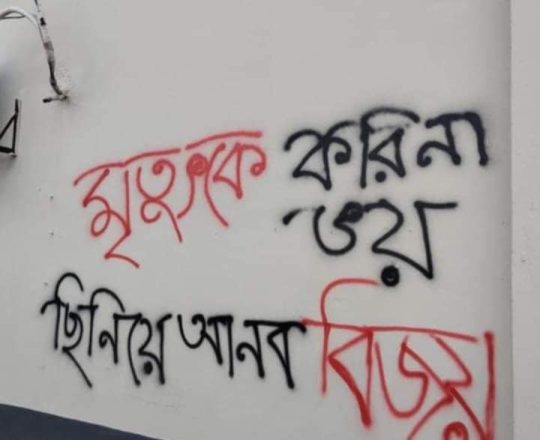 মৃত্যুকে করি না
ভয়
ছিনিয়ে আনব বিজয়